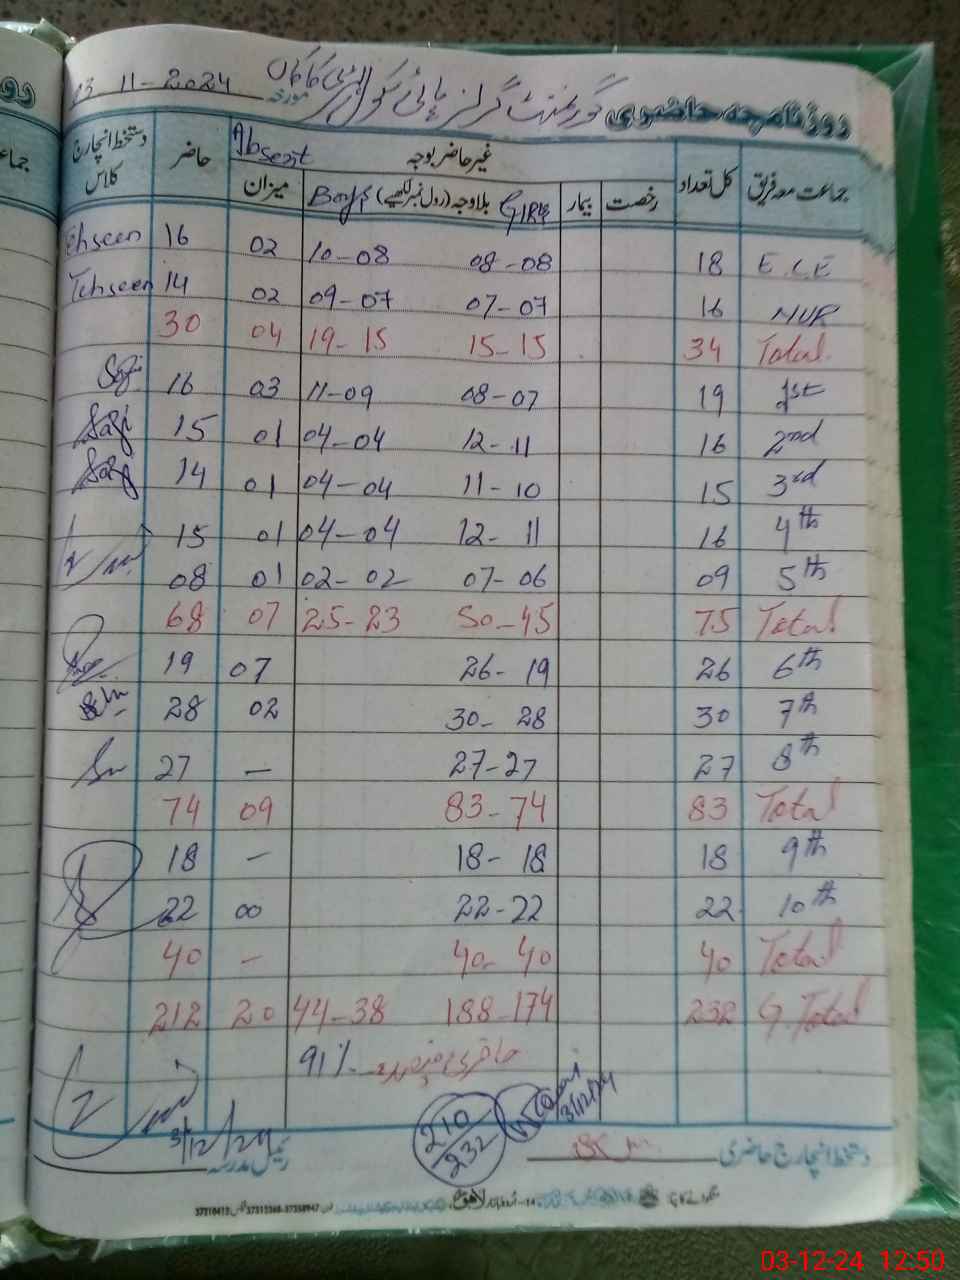 روزنامچہ حاضری گورنمنٹ گرلز ہائی سکول مورخہ 03 11-2024
جماعت معہ فریق کل تعداد غیر حاضر بوجہ Absent حاضر دستخط انچارج کلاس
رخصت بیمار GIRLS بلاوجہ (رول نمبر لکھیے) Boys میزان
E.C.E 18 08-08 10-08 02 16 Tehseen
NUR 16 07-07 09-07 02 14 Tehseen
Total 34 15-15 19-15 04 30
1st 19 08-07 11-09 03 16
2nd 16 12-11 04-04 01 15
3rd 15 11-10 04-04 01 14
4th 16 12-11 04-04 01 15
5th 09 07-06 02-02 01 08
Total 75 50-45 25-23 07 68
6th 26 26-19 07 19
7th 30 30-28 02 28
8th 27 27-27 — 27
Total 83 83-74 09 74
9th 18 18-18 — 18
10th 22 22-22 00 22
Total 40 40-40 — 40
G.Total 232 188-174 44-38 20 212
حاضری فیصد 91%
210/232
3/12/24
3/12/24
دستخط انچارج حاضری
رئیس مدرسہ
لاہور
03-12-24 12:50